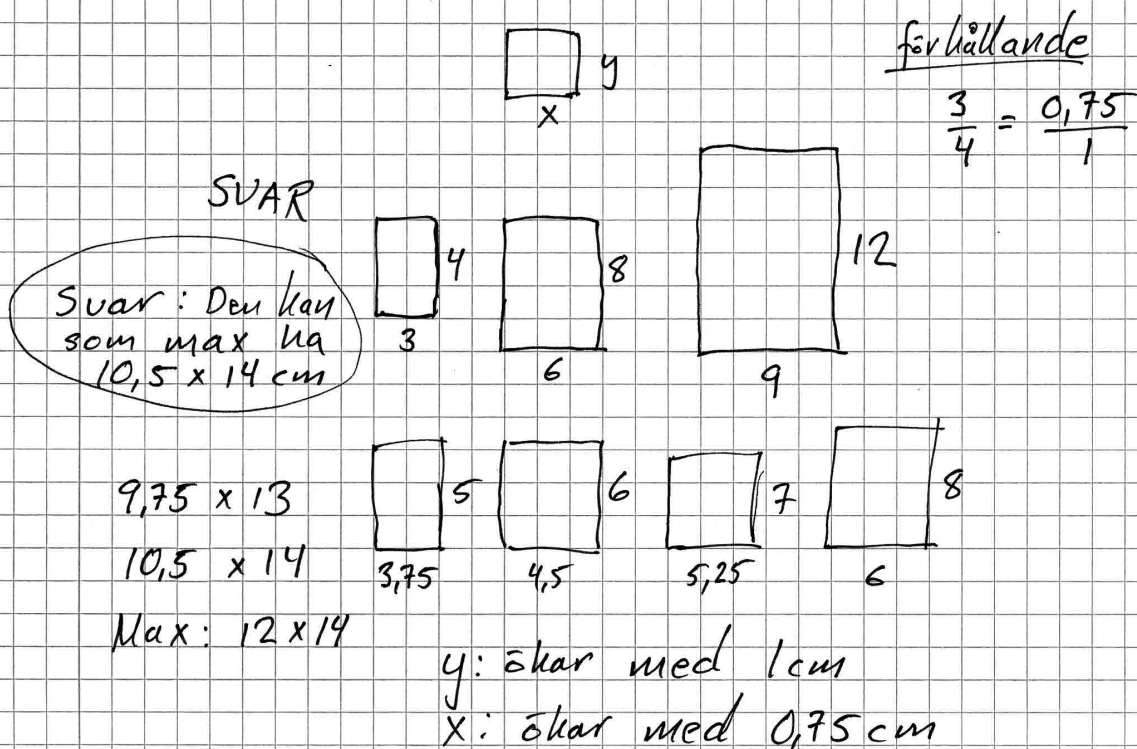 förhållande
3/4 = 0,75/1
y
x
SVAR
Svar: Den kan
som max ha
10,5 x 14 cm
4
3
8
6
12
9
9,75 x 13
10,5 x 14
Max: 12 x 14
5
3,75
6
4,5
7
5,25
8
6
y: ökar med 1 cm
x: ökar med 0,75 cm